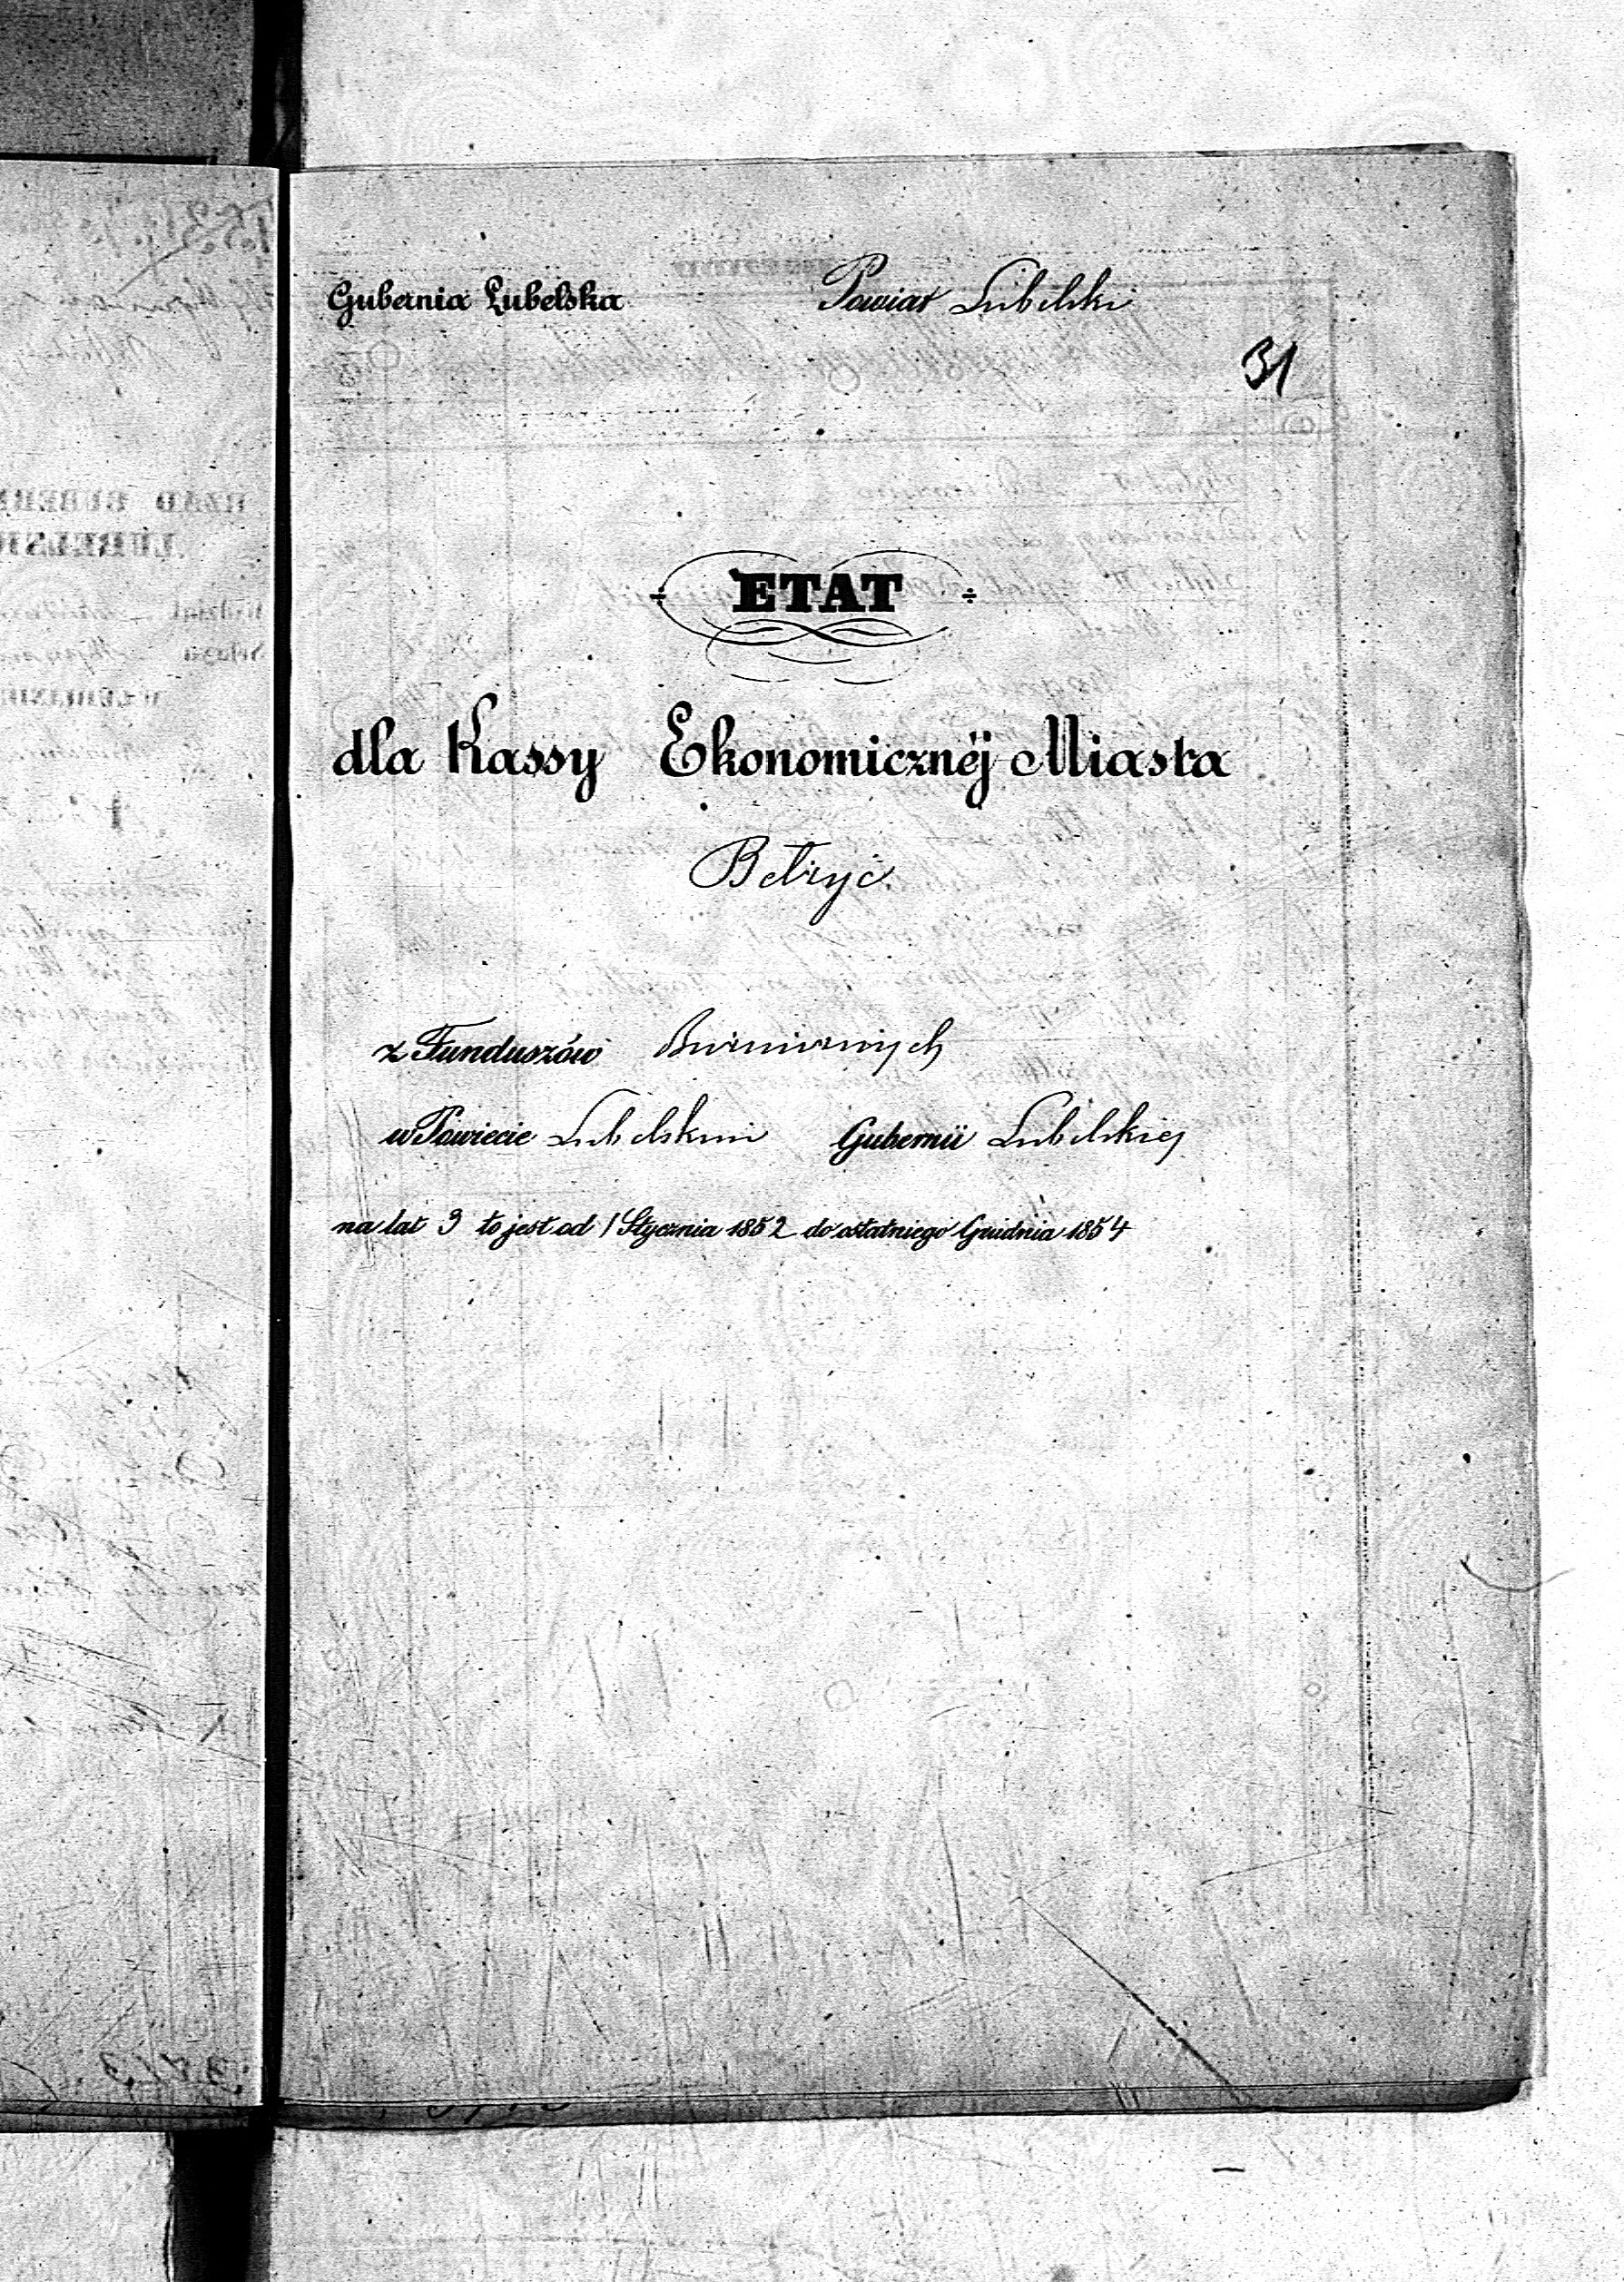 Gubernia Lubelska Powiat Lubelski
31
ETAT
dla Kassy Ekonomicznéj Miasta
Bełżyc
z Funduszów
w Powiecie Lubelskim Gubernii Lubelskiej
na lat 3 to jest od 1 Stycznia 1852 do ostatniego Grudnia 1854